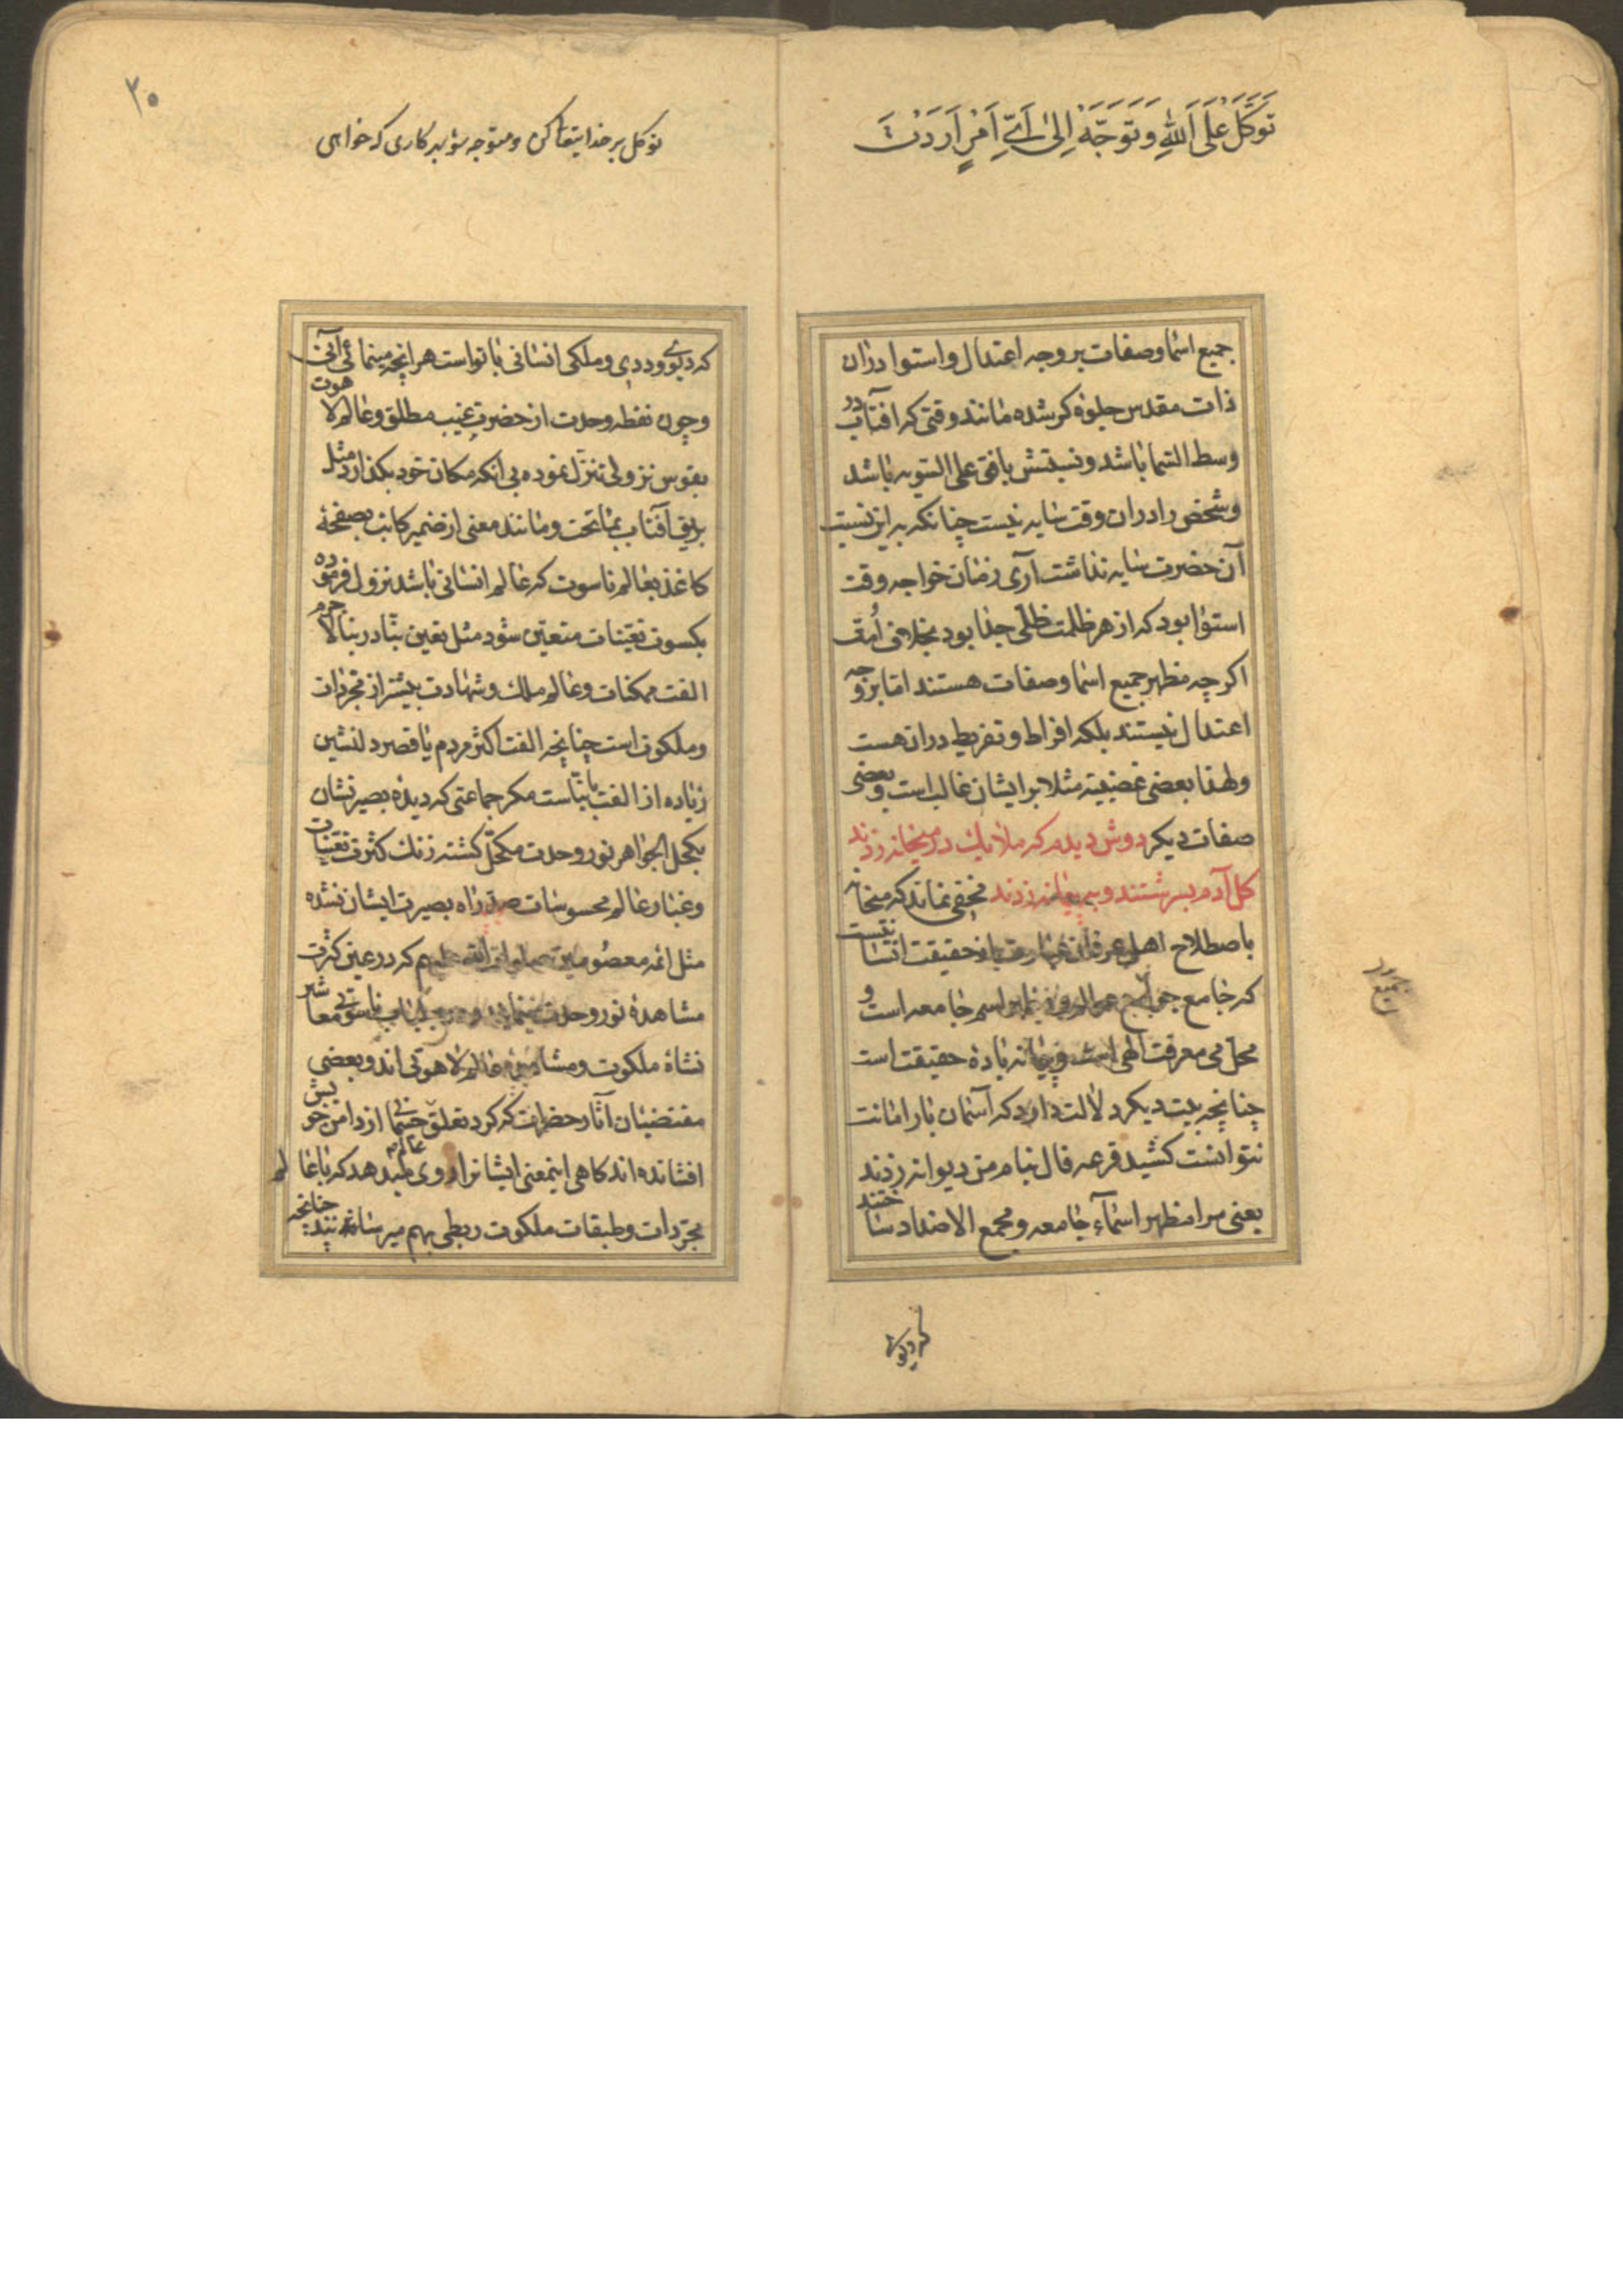 توکل علی الله وتوجه الی ای امر اردت
جمیع اسما و صفات بر وجه اعتدال و استوا دران
ذات مقدس جلوه کر شده مانند وقتی که افتاب در
وسط السما باشد و نسبتش بافق علی السویه باشد
و شخص را دران وقت سایه نیست چنانکه به این نسبت
آن حضرت سایه نداشت آری زمان خواجه وقت
استوا بود که از هر ظلمت ظلی جدا بود بخلاف امت
اکر چه مظهر جمیع اسما و صفات هستند اما بر وجه
اعتدال نیستند بلکه افراط و تفریط دران هست
ولهذا بعضی غضبیته مثلا بر ایشان غالب است و بعضی
صفات دیکر دوش دیدم که ملایک در میخانه زدند
کل آدم بسرشتند و به پیمانه زدند مخفی نماند که میخانه
باصطلاح اهل عرفان عبارت از حقیقت انسانیست
که جامع جمیع عوالم اسم جامعه است و
محل می معرفت الهی است و پیمانه باده حقیقت است
چنانچه بیت دیکر دلالت دارد که آسمان بار امانت
نتوانست کشید قرعه فال بنام من دیوانه زدند
یعنی مرا مظهر اسماء جامعه و مجمع الاضداد ساختند
جمیع
که دیوی
۳۰
توکل بر خدایتعا کن و متوجه شو بهر کاری که خواهی
که دیوی و ددی و ملکی انسانی با تو است هر انچه مینمائی آنی
و چون نقطه وحدت از حضرت غیب مطلق و عالم لاهوت
بقوس نزولی تنزل نموده بی انکه مکان خود بکذارد مثل
بریق آفتاب بماتحت و مانند معنی از ضمیر کاتب بصفحهٔ
کاغذ بعالم ناسوت که عالم انسانی باشد نزول فرموده
بکسوت تعینات متعین شود مثل تعین بنا در بنا لاجرم
الفت ممکنات و عالم ملک و شهادت بیشتر از مجردات
و ملکوت است چنانچه الفت اکثر مردم با قصر دلنشین
زیاده از الفت با بناست مکر جماعتی که دیده بصیرتشان
بکحل الجواهر نور وحدت مکحل کشته زنک کثرت تعینات
و غبار عالم محسوسات سد راه بصیرت ایشان نشده
مثل ائمه معصومین صلوات الله علیهم که در عین کثرت
مشاهدهٔ نور وحدت مینمایند ناسوتی معاشر
نشاهٔ ملکوت و عالم لاهوتی اند و بعضی
مقتضیان آثار حضرات که کرد تعلق جسمانی از دامن خویش
افشانده اند کاهی اینمعنی ایشانرا روی میدهد که با عالم
مجردات و طبقات ملکوت ربطی بهم میرسانند چنانچه